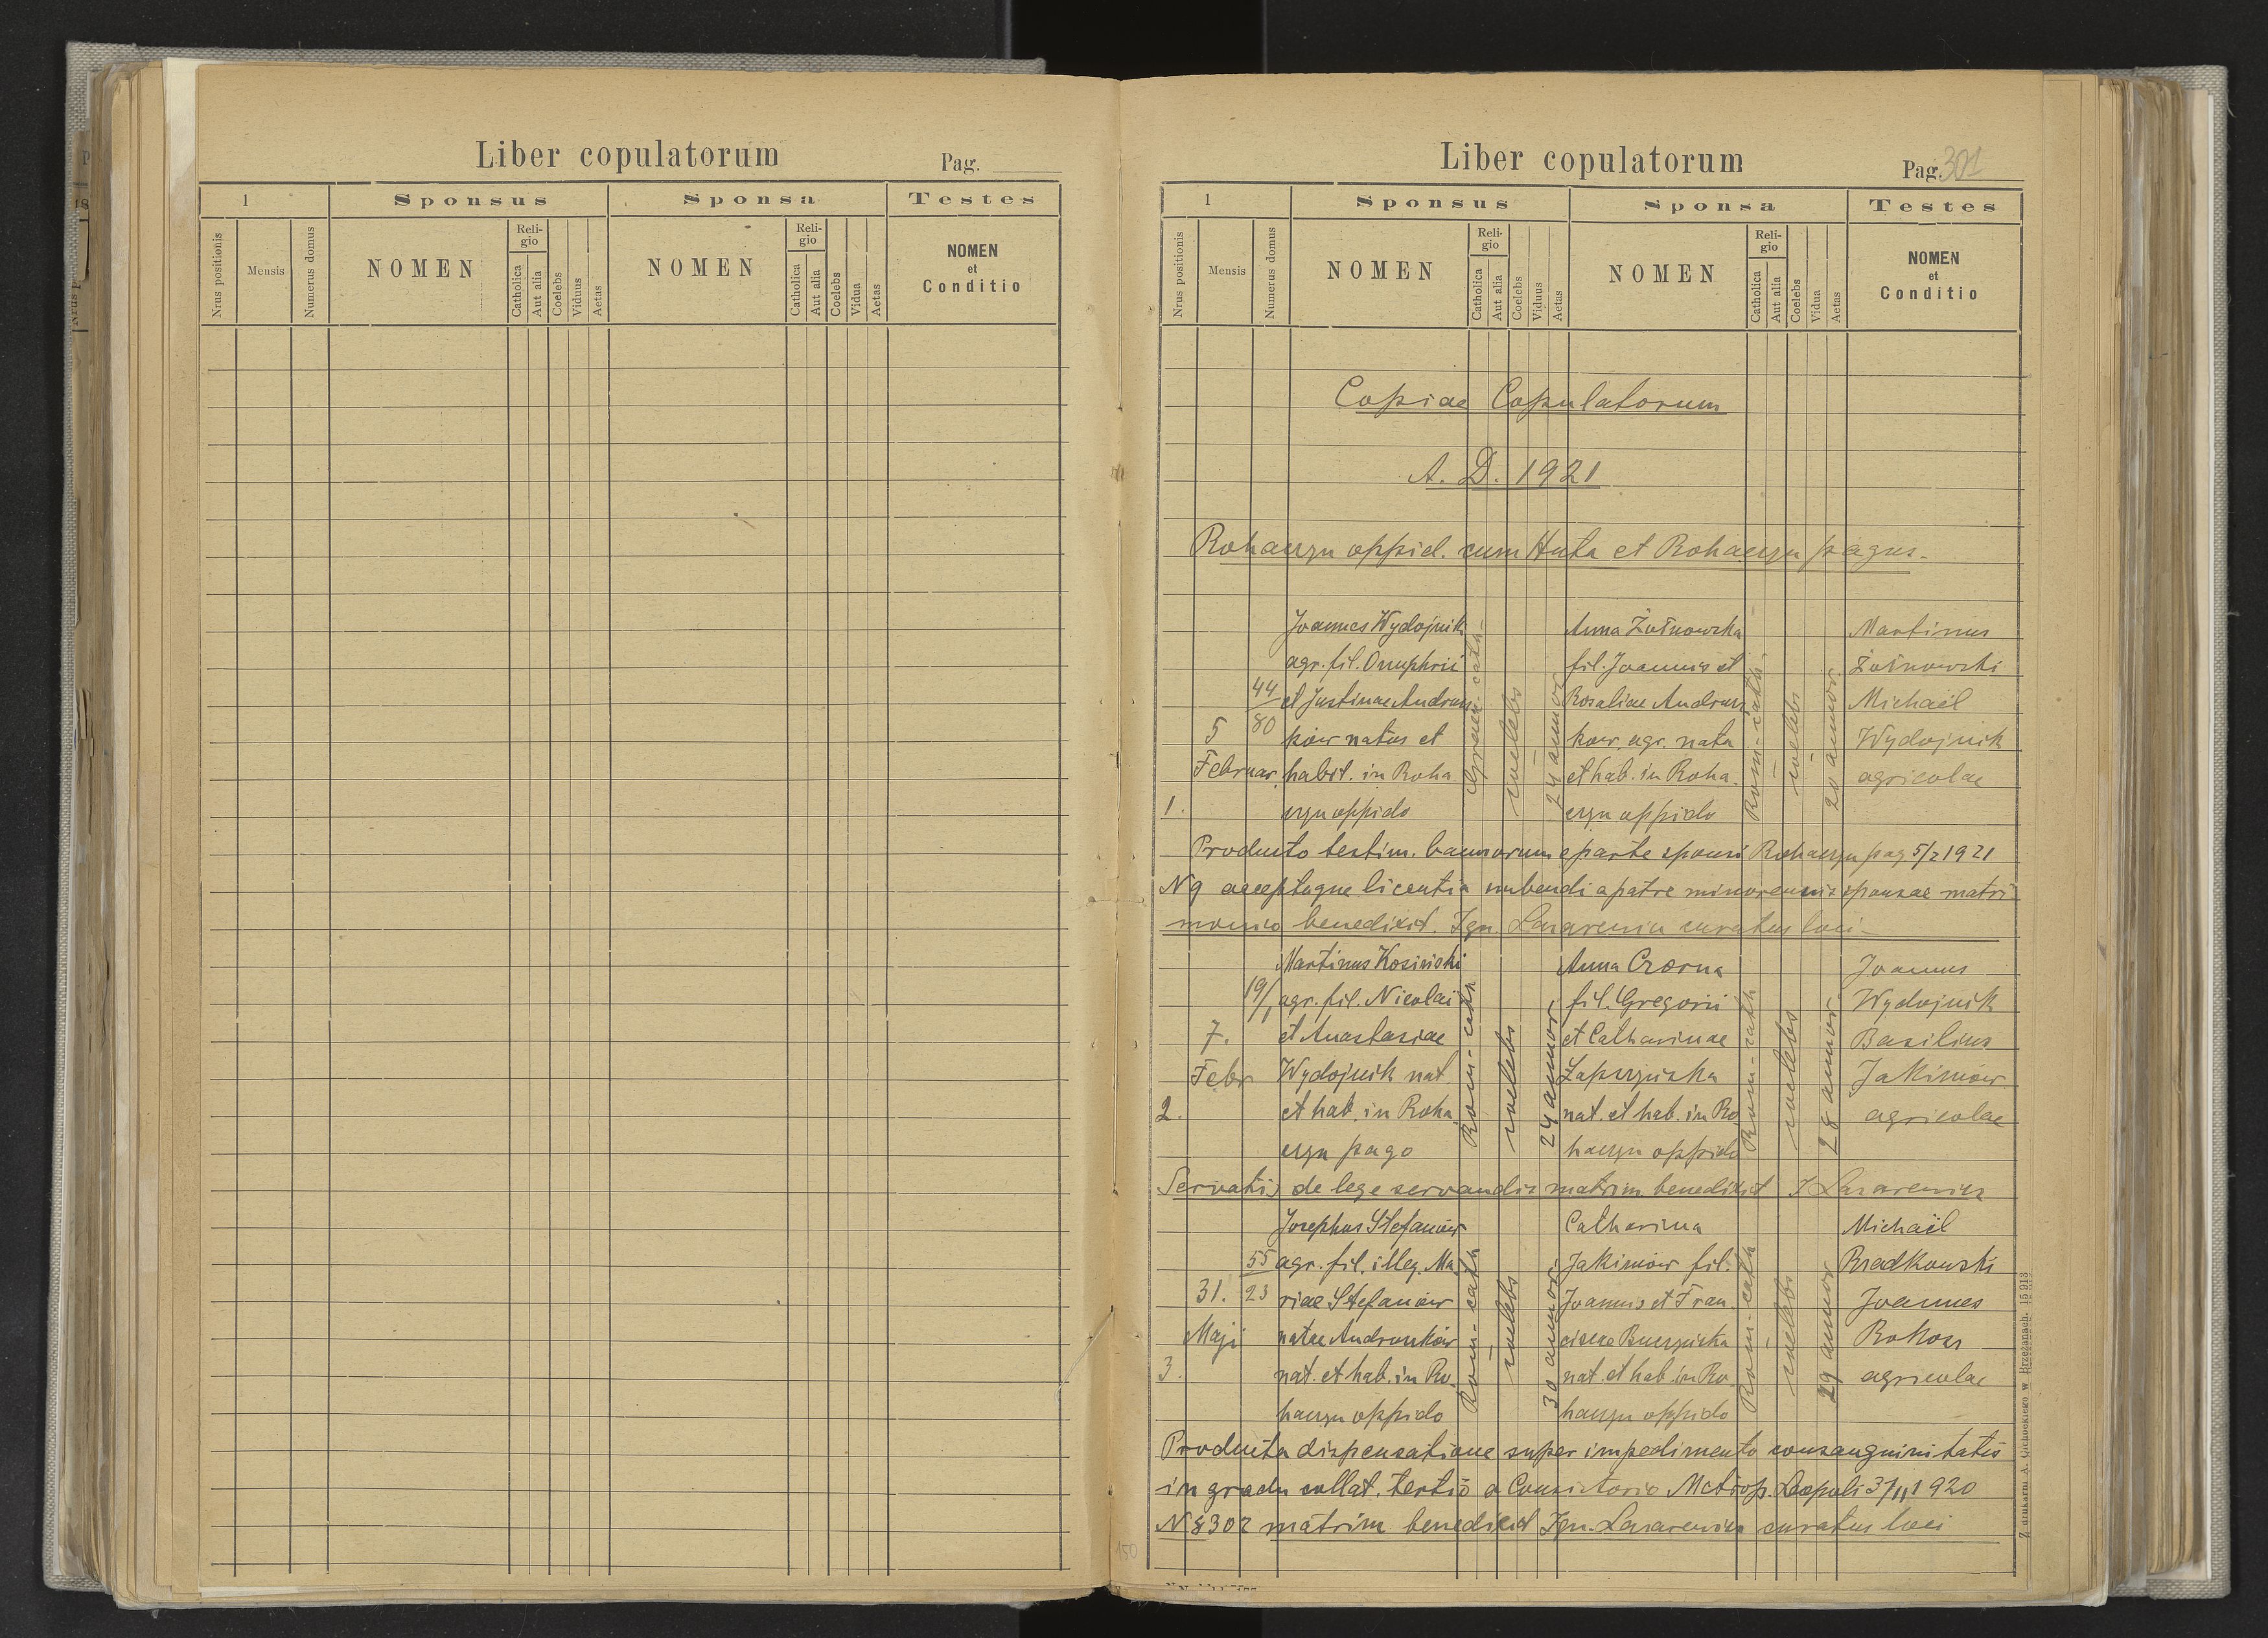 Liber copulatorum
Pag.
1
Sponsus
Sponsa
Testes
Nrus positionis
Mensis
Numerus domus
NOMEN
Reli-
gio
Catholica
Aut alia
Coelebs
Viduus
Aetas
NOMEN
Reli-
gio
Catholica
Aut alia
Coelebs
Vidua
Aetas
NOMEN
et
Conditio
Liber copulatorum
Pag. 301
1
Sponsus
Sponsa
Testes
Nrus positionis
Mensis
Numerus domus
NOMEN
Reli-
gio
Catholica
Aut alia
Coelebs
Viduus
Aetas
NOMEN
Reli-
gio
Catholica
Aut alia
Coelebs
Vidua
Aetas
NOMEN
et
Conditio
Copiae Copulatorum
A. D. 1921
Rohaczyn oppid. cum Huta et Rohaczyn pagus.
1.
5
Februar
44
80
Joannes Wydojnik
agr. fil. Onuphrii
et Justinae Andrus
ków natus et
habit. in Roha
czyn oppido
Graec-cath-
coelebs
24 annor
Anna Żołnowska
fil. Joannis et
Rosaliae Andrus
ków agr. nata
et hab. in Roha.
czyn oppido
Rom-cath.
coelebs
20 annor.
Martinus
Żołnowski
Michaël
Wydojnik
agricolae
Producto testim. bannorum e parte sponsi Rohaczyn pag 5/2 1921
N 9 acceptaque licentia nubendi a patre minorennis sponsae matri
monio benedixit. Ign. Lazarewicz curatus loci-
2.
7.
Febr
19/1
Martinus Kosiński
agr. fil. Nicolai
et Anastasiae
Wydojnik nat
et hab. in Roha
czyn pago
Rom-cath
coelebs
24 annor.
Anna Czorna
fil. Gregorii
et Catharinae
Łapczyńska
nat. et hab. in Ro
haczyn oppido
Rom-cath
coelebs
28 annor.
Joannes
Wydojnik
Basilius
Jakimów
agricolae
Servatis de lege servandis matrim. benedixit I Lazarewicz
3.
31.
Maji
55
23
Josephus Stefanów
agr. fil. illeg. Ma
riae Stefanów
natae Andrusków
nat. et hab. in Ro
haczyn oppido
Rom-cath
coelebs
30 annor.
Catharina
Jakimów fil.
Joannis et Fran
ciscae Buczyńska
nat. et hab. in Ro
haczyn oppido
Rom-cath
coelebs
29 annor
Michaël
Rradkowski
Joannes
Rokosz
agricolae
Producta dispensatione super impedimento consanguinitatis
in gradu collat. tertio a Consistorio Metrop. Leopoli 3/11 1920
N 8302 matrim. benedixit Ign. Lazarewicz curatus loci
150
Z drukarni A. Cichockiego w Brzeżanach.